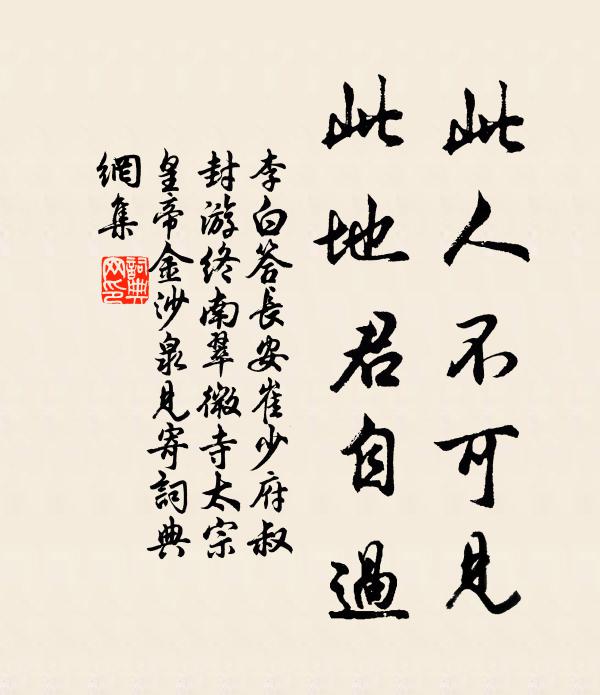 此人不可見
此地君自過
李白答長安崔少府叔
封游終南翠微寺太宗
皇帝金沙泉見寄詞典
網集
詞典
网印